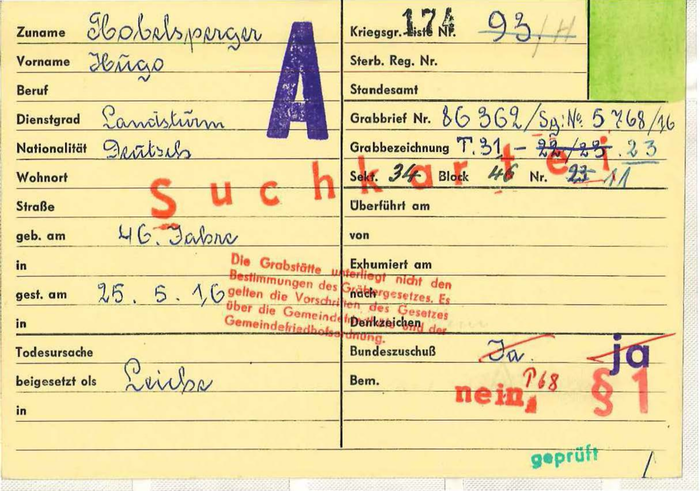 Zuname Hobelsperger
Vorname Hugo
Beruf
Dienstgrad Landsturm
Nationalität Deutsch
Wohnort
Straße
geb. am 46. Jahre
in
gest. am 25. 5. 16
in
Todesursache
beigesetzt als Leiche
in
A
Suchkartei
Die Grabstätte unterliegt nicht den
Bestimmungen des Gräbergesetzes. Es
gelten die Vorschriften des Gesetzes
über die Gemeindefriedhöfe und der
Gemeindefriedhofsordnung.
174
Kriegsgr. Liste Nr. 93./H
Sterb. Reg. Nr.
Standesamt
Grabbrief Nr. 86362/Sg: No 5768/16
Grabbezeichnung T. 31 - 22/23 . 23
Sekt. 34 Block 46 Nr. 23 11
Überführt am
von
Exhumiert am
nach
Denkzeichen
Bundeszuschuß Ja. ja
Bem. nein, P68 §1
geprüft